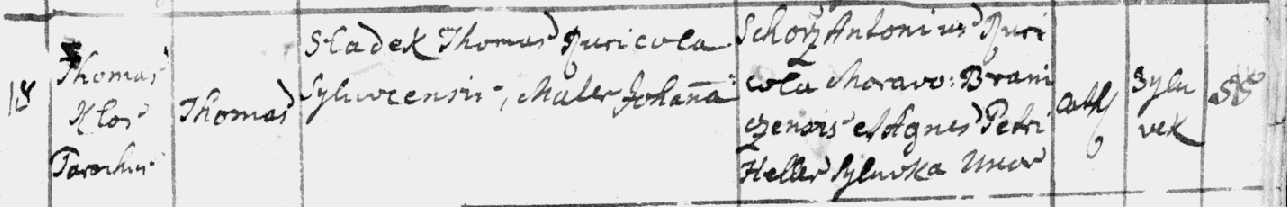 18
Thomas
Klos
Parochus
Thomas
Sladek Thomas Ruricola
Syluvcensis, Mater Johaña
Schorz Antonius Ruri
cola Moravo: Brani
czensis et Agnes Petri
Heller Syluvka Uxor
Cath
Sylu
vek